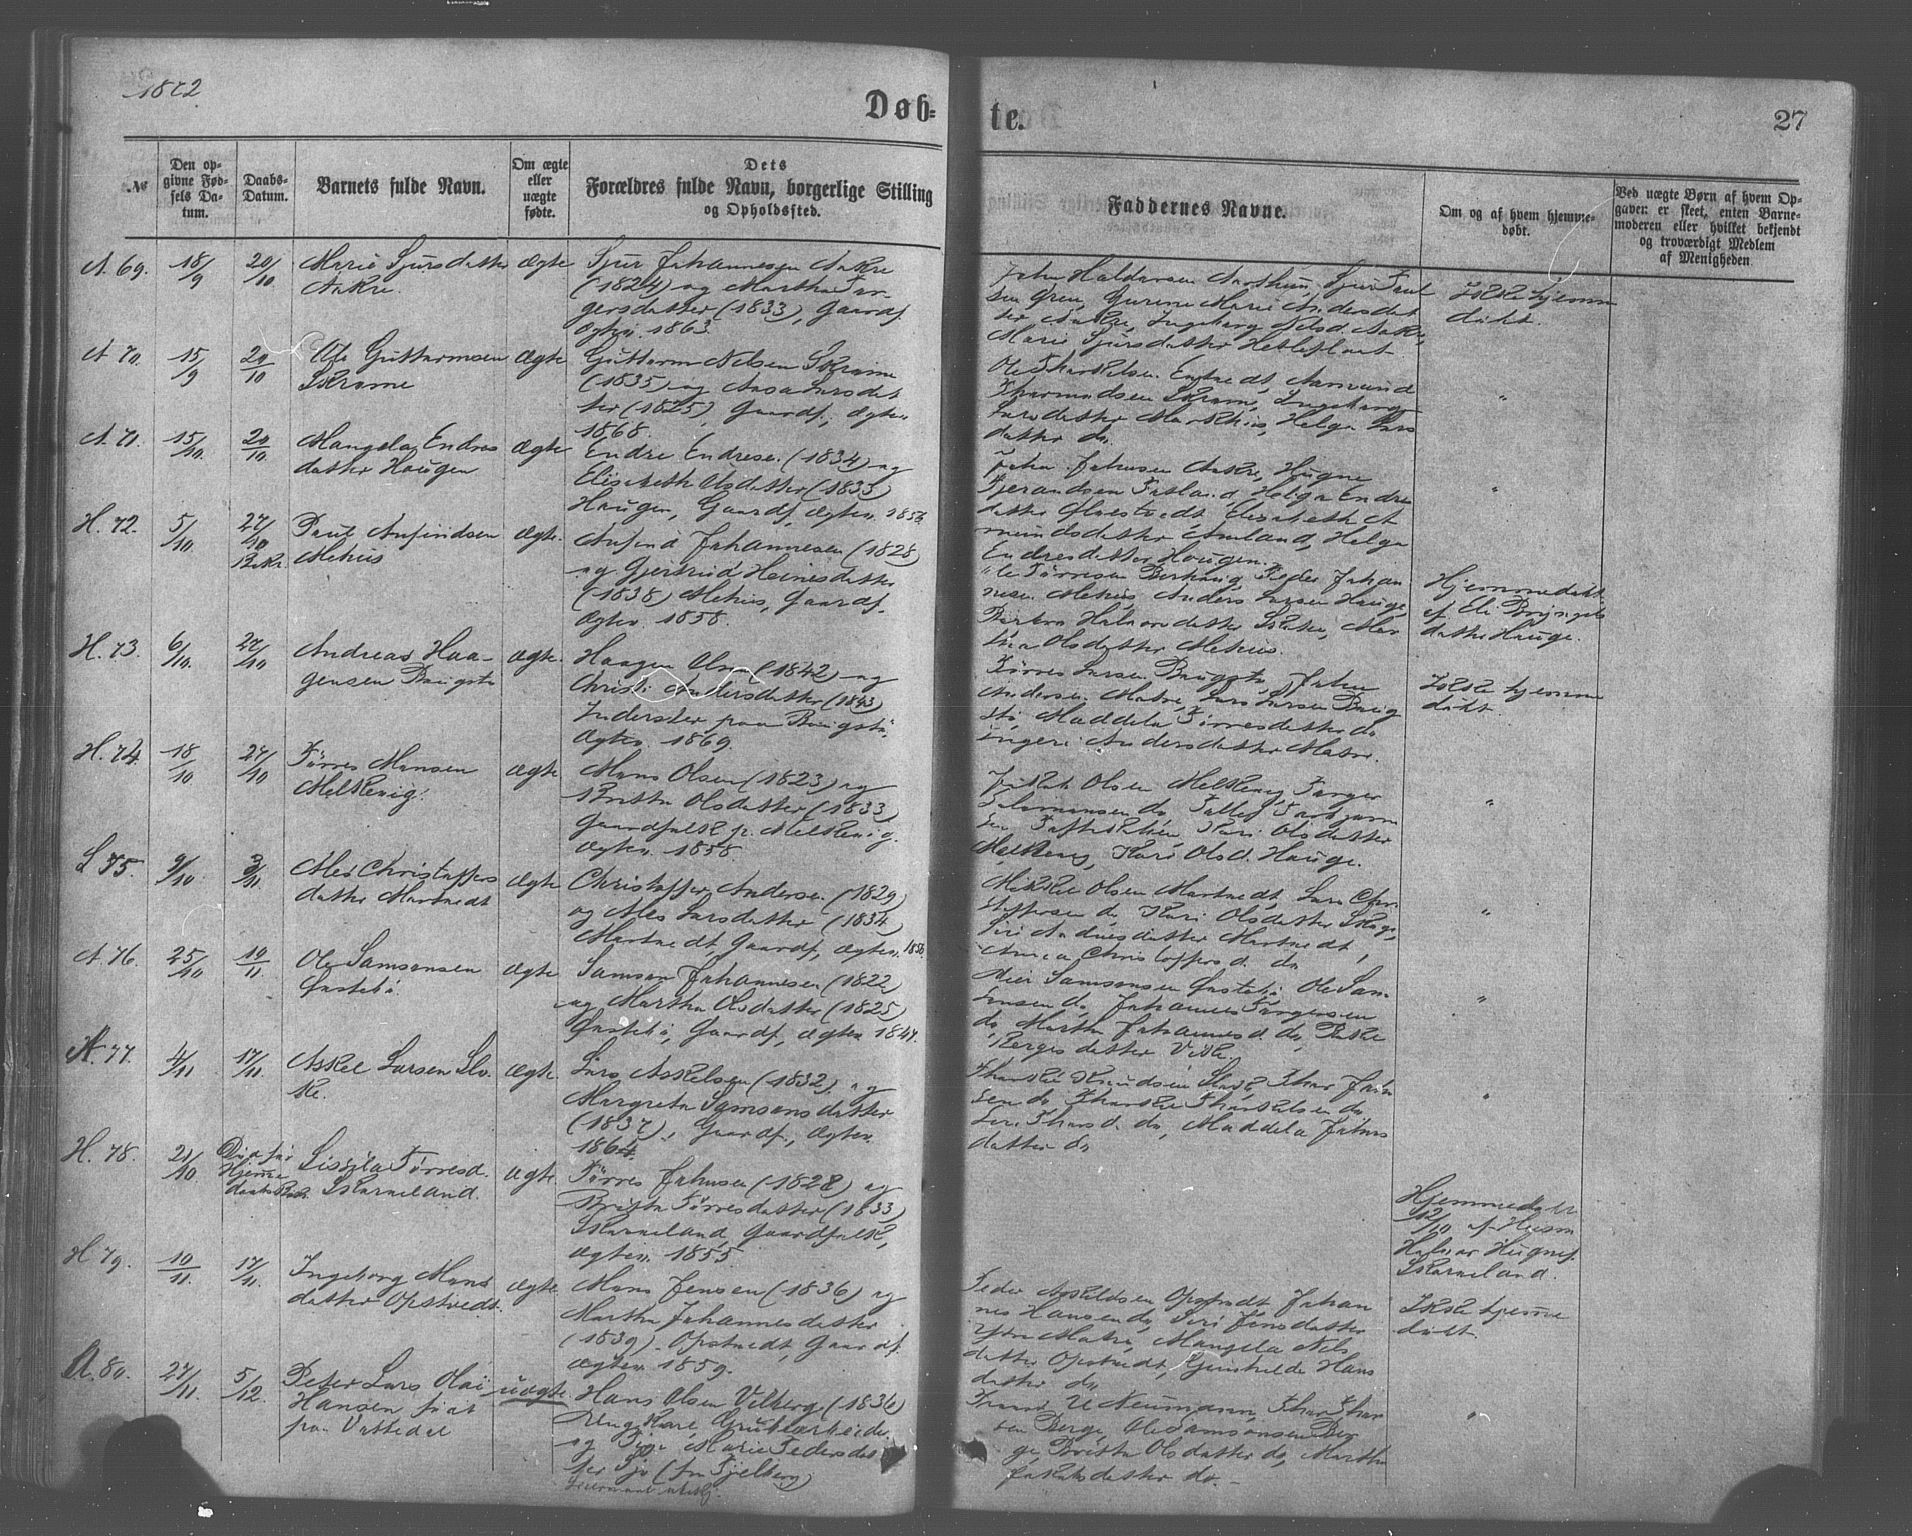 1872
Døb-
te.
27
№
Den op-
givne Fød-
sels Da-
tum.
Daabs-
Datum.
Barnets fulde Navn.
Om ægte
eller
uægte
fødte.
Dets
Forældres fulde Navn, borgerlige Stilling
og Opholdssted.
Faddernes Navne.
Om og af hvem hjemme-
døbt.
Ved uægte Børn af hvem Op-
gaven er skeet, enten Barne-
moderen eller hvilket bekjendt
og troværdigt Medlem
af Menigheden.
A. 69.
18/9
20/10
Marie Sjursdatter
Aakre.
ægte
Sjur Johannesen Aakre
(1824) og Martha Tor-
gersdatter (1833), Gaardf.
Ægtev. 1863.
John Haldorsen Aarthun, Sjur Poul
sen Grue, Gurine Marie Andersdat
ter Aakre, Ingeborg Nilsd. Aakre,
Marie Sjursdatter
Ikke hjemme
døbt.
A 70.
15/9
20/10
Ole Guttormsen
Skrame
ægte
Guttorm Nilsen Skrame
(1835) og Aasa Larsdat
ter (1825), Gaardf., Ægtev.
1868.
Ole Thorkelsen
Aamund
Thormundsen Skrame, Ingeborg
Larsdatter Markhus, Helga Lars
datter do
"
A. 71.
15/10.
20/10.
Mangela Endres
datter Haugen
ægte
Endre Endresen (1834) og
Elisabeth Olsdatter (1833)
Haugen, Gaardf, Ægtev. 1856
John Johnsen Aakre, Hugne
Gjerundsen Fatland, Helga Endres
datter Elisabeth A
mundsdatter Helga
Endresdatter Haugen.
"
H. 72.
5/10.
27/10
Bekr.
Paul Anfindsen
Mehus
ægte.
Anfind Johannesen (1828)
og Gjertrud Heinesdatter
(1838) Mehus, Gaardf.
Ægtev. 1858.
Ole Tørresen Berhaug, Peder Johan
nesen Mehus, Anders Larsen Hauge,
Barbro Halvorsdatter Mar
tha Olsdatter Mehus.
Hjemmedøbt
af Eli Brynjels
datter Hauge.
H. 73.
6/10.
27/10
Andreas Haa-
gensen Baugstø
ægte.
Haagen Olsen (1842) og
Christi Andersdatter (1843)
Inderster paa Baugstø.
Ægtev. 1869.
Tørres Larsen Baugstø, John
Andersen Matre, Lars Larsen Baug
stø, Maddela Tørresdatter do
Andersdatter Matre.
Ikke hjemme
døbt.
H. 74.
18/10
27/10
Tørres Monsen
Melkevig.
ægte.
Mons Olsen (1823) og
Britta Olsdatter (1833)
Gaardfolk p. Melkevig.
Ægtev. 1858.
Jakob Olsen Melkevig, Torger
Salomonsen do
Kari Olsdatter
Melkevig, Kari Olsd. Hauge.
"
S 75.
9/10
3/11.
Ales Christoffers
datter Martvedt
ægte
Christoffer Andersen (1829)
og Ales Larsdatter (1834)
Martvedt, Gaardf, Ægtev. 1856
Mikkel Olsen Martvedt, Lars Chri
stoffersen do, Kari Olsdatter
Siri Andersdatter Martvedt,
Anna Christoffersd. do
"
A. 76.
25/10
10/11.
Ole Samsonsen
Østebø.
ægte
Samson Johannesen (1822)
og Martha Olsdatter (1825)
Østebø, Gaardf, Ægtev. 1847.
Samsonsen Østebø, Ole Sam
sonsen do, Johannes Torgersen
do, Martha Johannesd. do,
Børgesdatter
"
A. 77.
4/11
17/11.
Askel Larsen Slo-
ke.
ægte.
Lars Askelsen (1832) og
Margreta Samsonsdatter
(1837), Gaardf., Ægtev.
1864.
Thorkel Knudsen Thor John
sen do Thorkel Thorkelsen do
Siri Thorsd. do, Maddela Johns
datter do
"
H. 78.
21/10.
Død før
Hjemme
daabs Bekr.
Sissila Tørresd.
Skromeland.
ægte.
Tørres Johnsen (1828) og
Britta Tørresdatter (1833)
Skromeland, Gaardfolk,
Ægtev. 1855.
Hjemmedøbt
/10 af
Halvor Hugnes.
Skromeland.
H 79.
10/11.
17/11.
Ingeborg Mons
datter Opstvedt.
ægte.
Mons Jensen (1836) og
Martha Johannesdatter
(1839) Opstvedt, Gaardf.
Ægtev. 1859.
Peder Askildsen Opstvedt, Johan
nes Hansen do, Siri Jensdatter
Ytre Matre, Mangela Nils
datter Opstvedt, Gunhilde Hans
datter do
Ikke hjemme
døbt.
A. 80.
27/11.
5/12.
Peter Lars Olai
Hansen født
paa Vattedal
uægte
Hans Olsen Vikberge (1836)
Ungkarl, Grubearbeider
og Pige Marie Pedersdat
ter (fra Fjelberg)
Neumann, Thor Thor
sen Berge, Ole Samsonsen Ber
ge, Britta Olsdatter do, Martha
Jakobsdatter do.
"